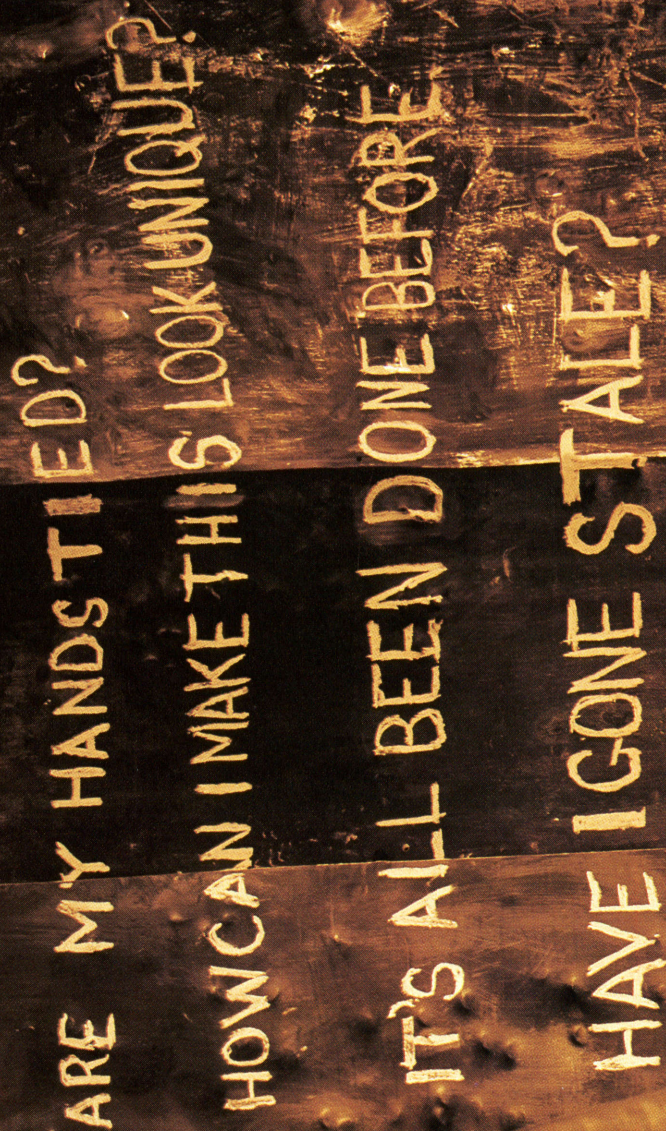 ARE MY HANDS TIED?
HOW CAN I MAKE THIS LOOK UNIQUE?
IT'S ALL BEEN DONE BEFORE
HAVE I GONE STALE?